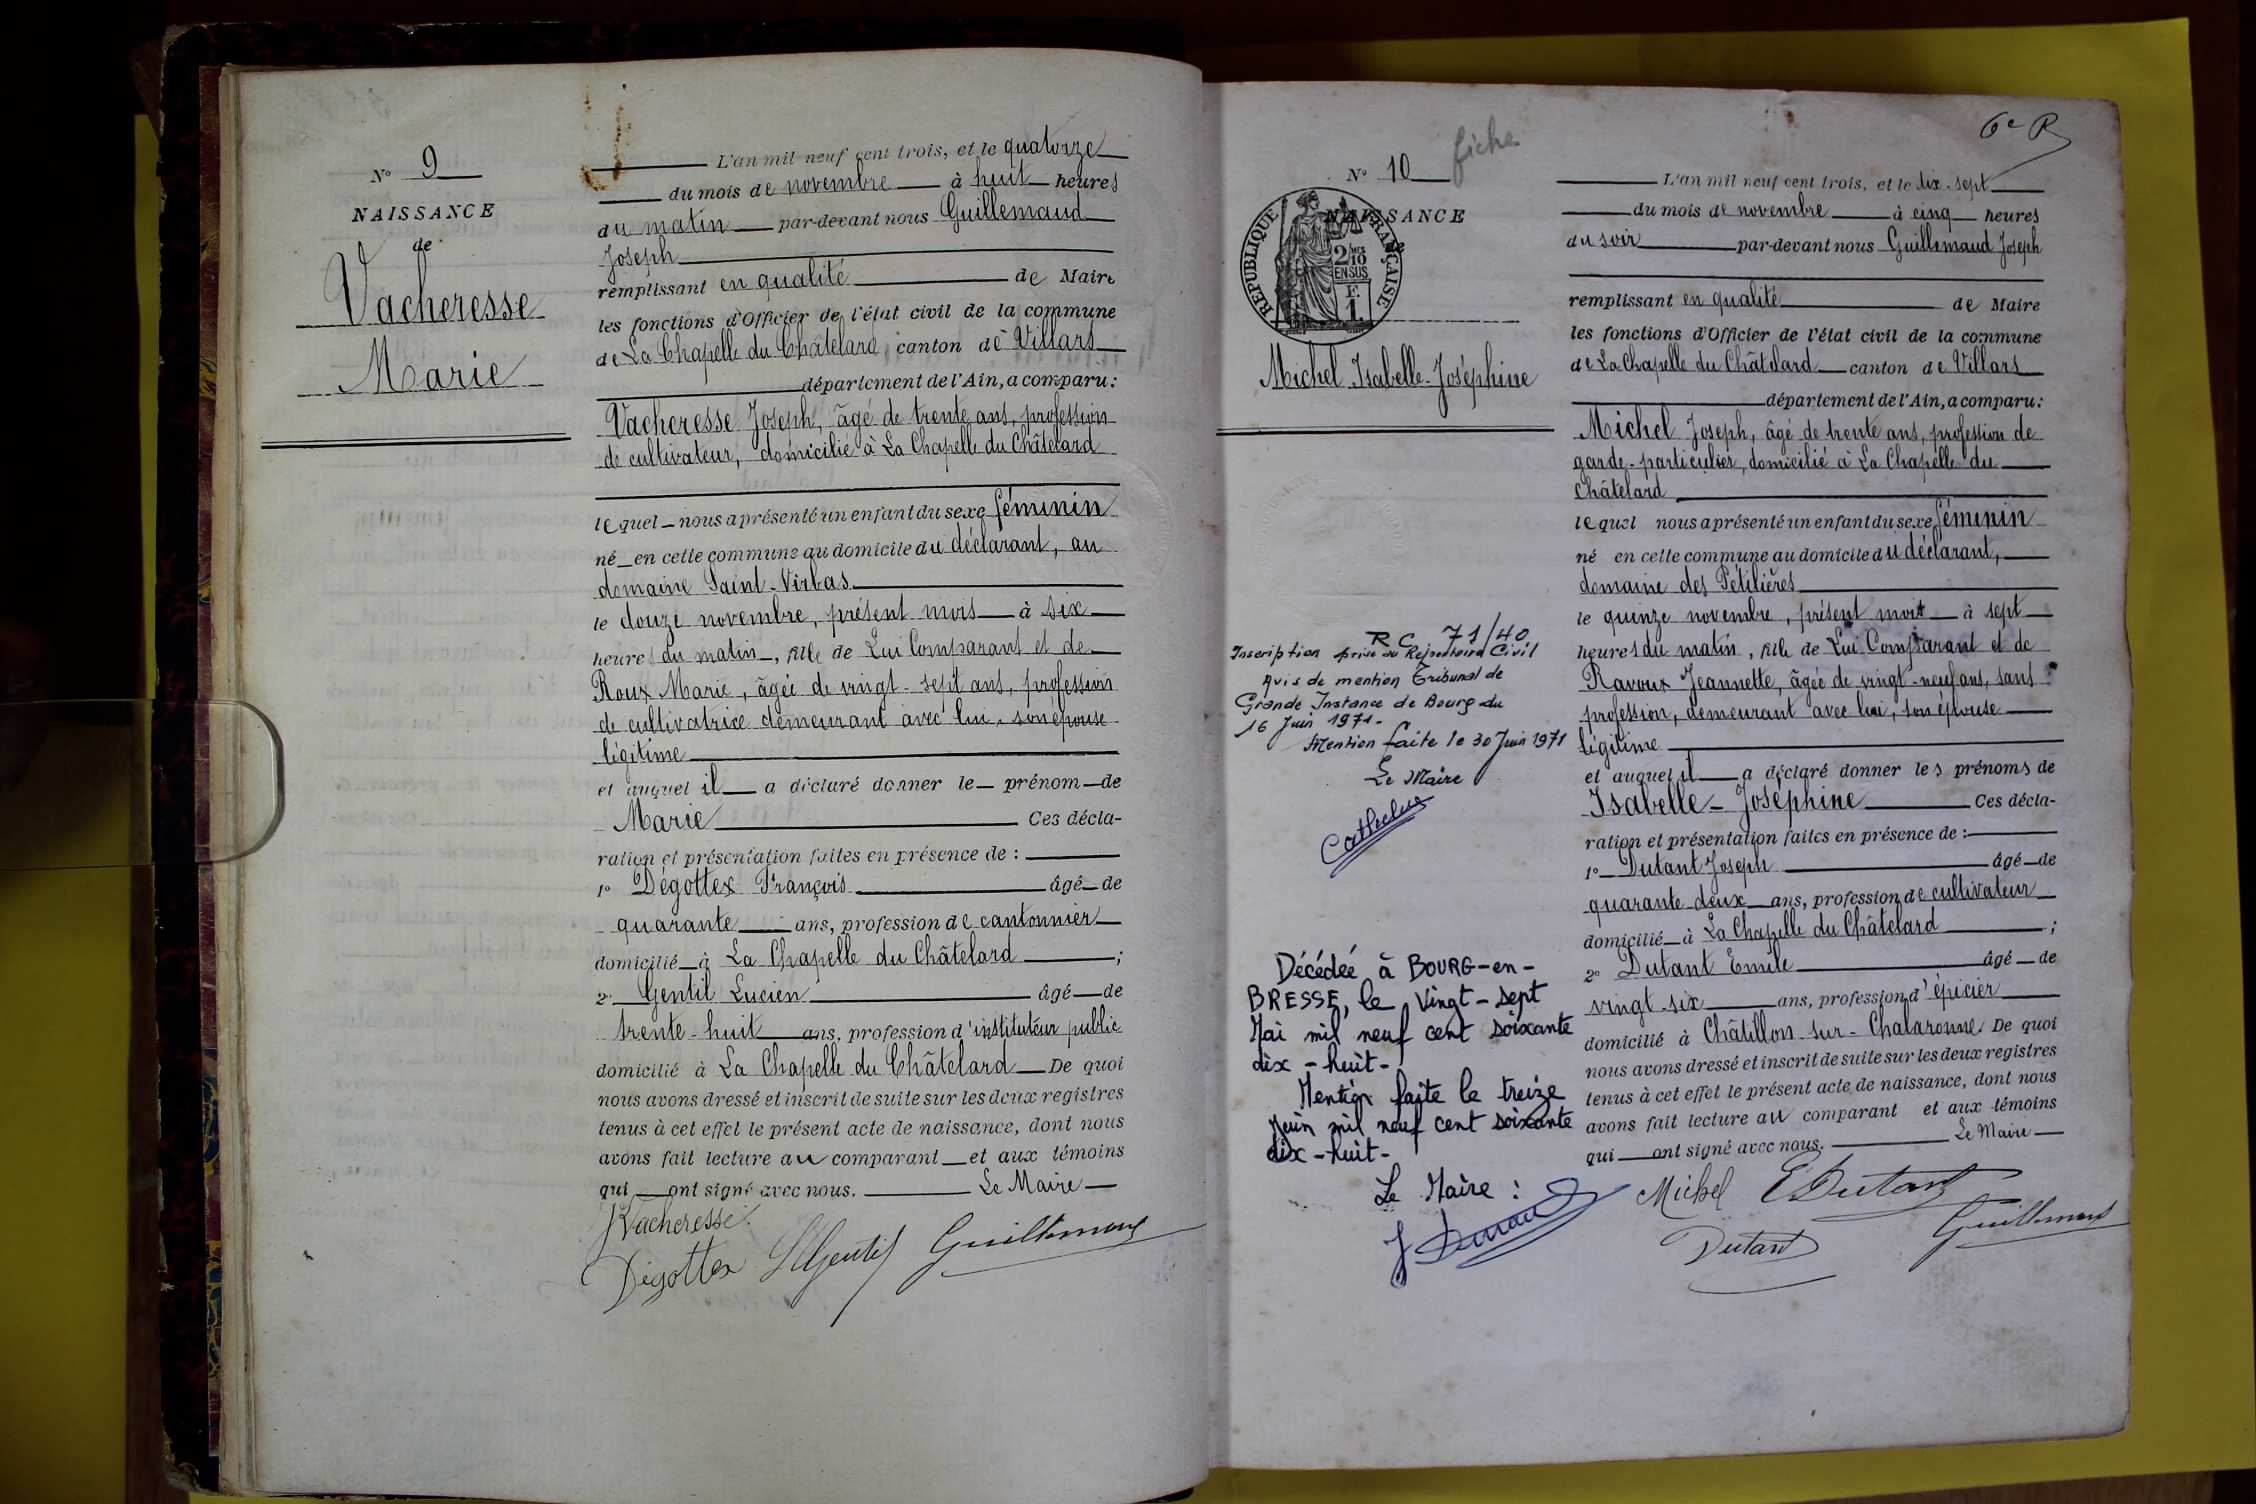 N° 9
NAISSANCE
de
Vacheresse
Marie
L'an mil neuf cent trois, et le quatorze
du mois de novembre à huit heures
du matin par-devant nous Guillemaud
Joseph
remplissant en qualité de Maire
les fonctions d'Officier de l'état civil de la commune
de La Chapelle du Châtelard, canton de Villars
département de l'Ain, a comparu:
Vacheresse Joseph, âgé de trente ans, profession
de cultivateur, domicilié à La Chapelle du Châtelard
lequel nous a présenté un enfant du sexe féminin
né en cette commune au domicile du déclarant, au
domaine Saint-Virbas
le douze novembre, présent mois à six
heures du matin, fille de Lui Comparant et de
Roux Marie, âgée de vingt-sept ans, profession
de cultivatrice demeurant avec lui, son épouse
légitime
et auquel il a déclaré donner le prénom de
Marie Ces décla-
ration et présentation faites en présence de :
1° Dégottex François âgé de
quarante ans, profession de cantonnier
domicilié à La Chapelle du Châtelard ;
2° Gentil Lucien âgé de
trente-huit ans, profession d'instituteur public
domicilié à La Chapelle du Châtelard De quoi
nous avons dressé et inscrit de suite sur les deux registres
tenus à cet effet le présent acte de naissance, dont nous
avons fait lecture au comparant et aux témoins
qui ont signé avec nous. Le Maire
J Vacheresse
Dégottex LGentil Guillemaud
6e R
N° 10 fiche
NAISSANCE
de
REPUBLIQUE FRANÇAISE
2 MES
10
EN SUS
F.
1.
Michel Isabelle-Joséphine
L'an mil neuf cent trois, et le dix-sept
du mois de novembre à cinq heures
du soir par-devant nous Guillemaud Joseph
remplissant en qualité de Maire
les fonctions d'Officier de l'état civil de la commune
de La Chapelle du Châtelard canton de Villars
département de l'Ain, a comparu:
Michel Joseph, âgé de trente ans, profession de
garde-particulier, domicilié à La Chapelle du
Châtelard
lequel nous a présenté un enfant du sexe féminin
né en cette commune au domicile du déclarant,
domaine des Pétilières
le quinze novembre, présent mois à sept
heures du matin, fille de Lui Comparant et de
Ravoux Jeannette, âgée de vingt-neuf ans, sans
profession, demeurant avec lui, son épouse
légitime
et auquel il a déclaré donner les prénoms de
Isabelle-Joséphine Ces décla-
ration et présentation faites en présence de :
1° Dutant Joseph âgé de
quarante deux ans, profession de cultivateur
domicilié à La Chapelle du Châtelard ;
2° Dutant Emile âgé de
vingt-six ans, profession d'épicier
domicilié à Châtillon-sur-Chalaronne De quoi
nous avons dressé et inscrit de suite sur les deux registres
tenus à cet effet le présent acte de naissance, dont nous
avons fait lecture au comparant et aux témoins
qui ont signé avec nous. Le Maire
Michel E Dutant
Dutant Guillemaud
R C 71/40
Inscription prise au Répertoire Civil
Avis de mention Tribunal de
Grande Instance de Bourg du
16 Juin 1971-
Mention faite le 30 Juin 1971
Le Maire
Décédée à BOURG-en-
BRESSE, le Vingt-sept
Mai mil neuf cent soixante
dix-huit-
Mention faite le treize
Juin mil neuf cent soixante
dix-huit-
Le Maire :